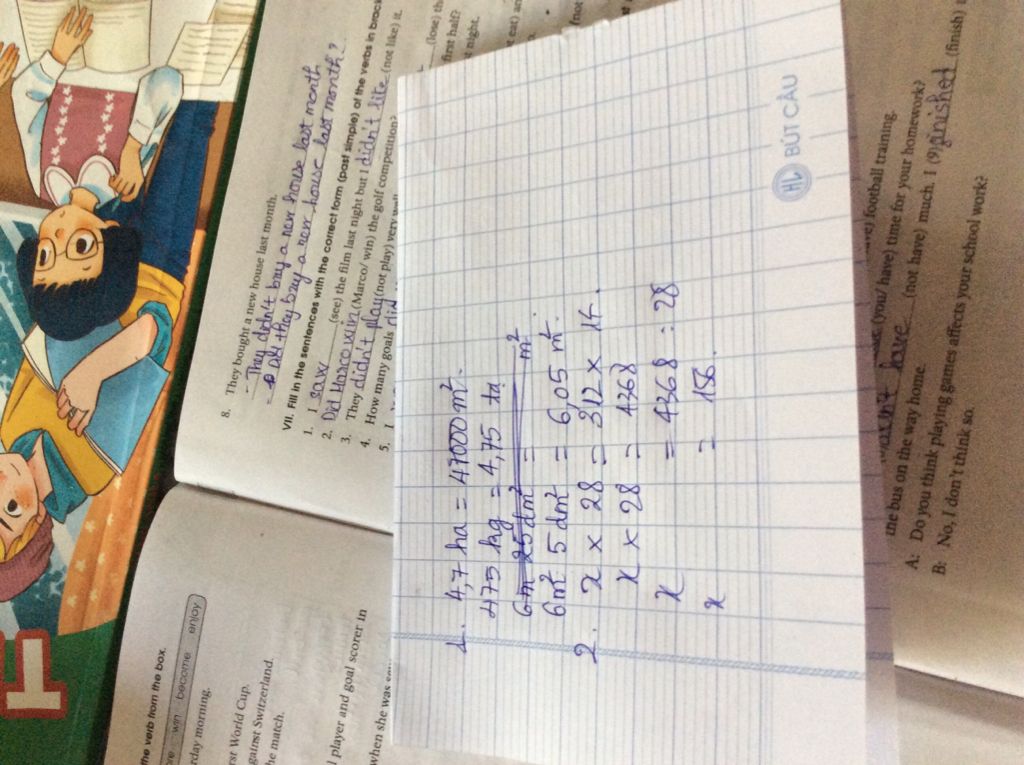 8. They bought a new house last month.
- They didn't buy a new house last month
they buy a new house last month?
VII. Fill in the sentences with the correct form (past simple) of the verbs in
1. I saw (see) the film last night but I didn't like (not like) it.
2. Did Marco win (Marco/ win) the golf competition?
3. They didn't play (not play) very
4. How many goals did
5. I
(lose) th
first half?
t night.
the verb from the box.
win become enjoy
rday morning.
rst World Cup.
gainst Switzerland.
he match.
l player and goal scorer in
when she was
1. 4,7 ha = 47000 m².
475 kg = 4,75 tạ
6m² 5 dm² = 6,05 m².
2. x × 28 = 312 × 14.
x × 28 = 4368
x = 4368 : 28
x = 156.
HL BÚT CÂU
football training.
the bus on the way home.
A: Do you think playing games affects your school work?
B: No, I don't think so.
(you/ have) time for your homework?
have (not have) much. I (9) finished (finish)